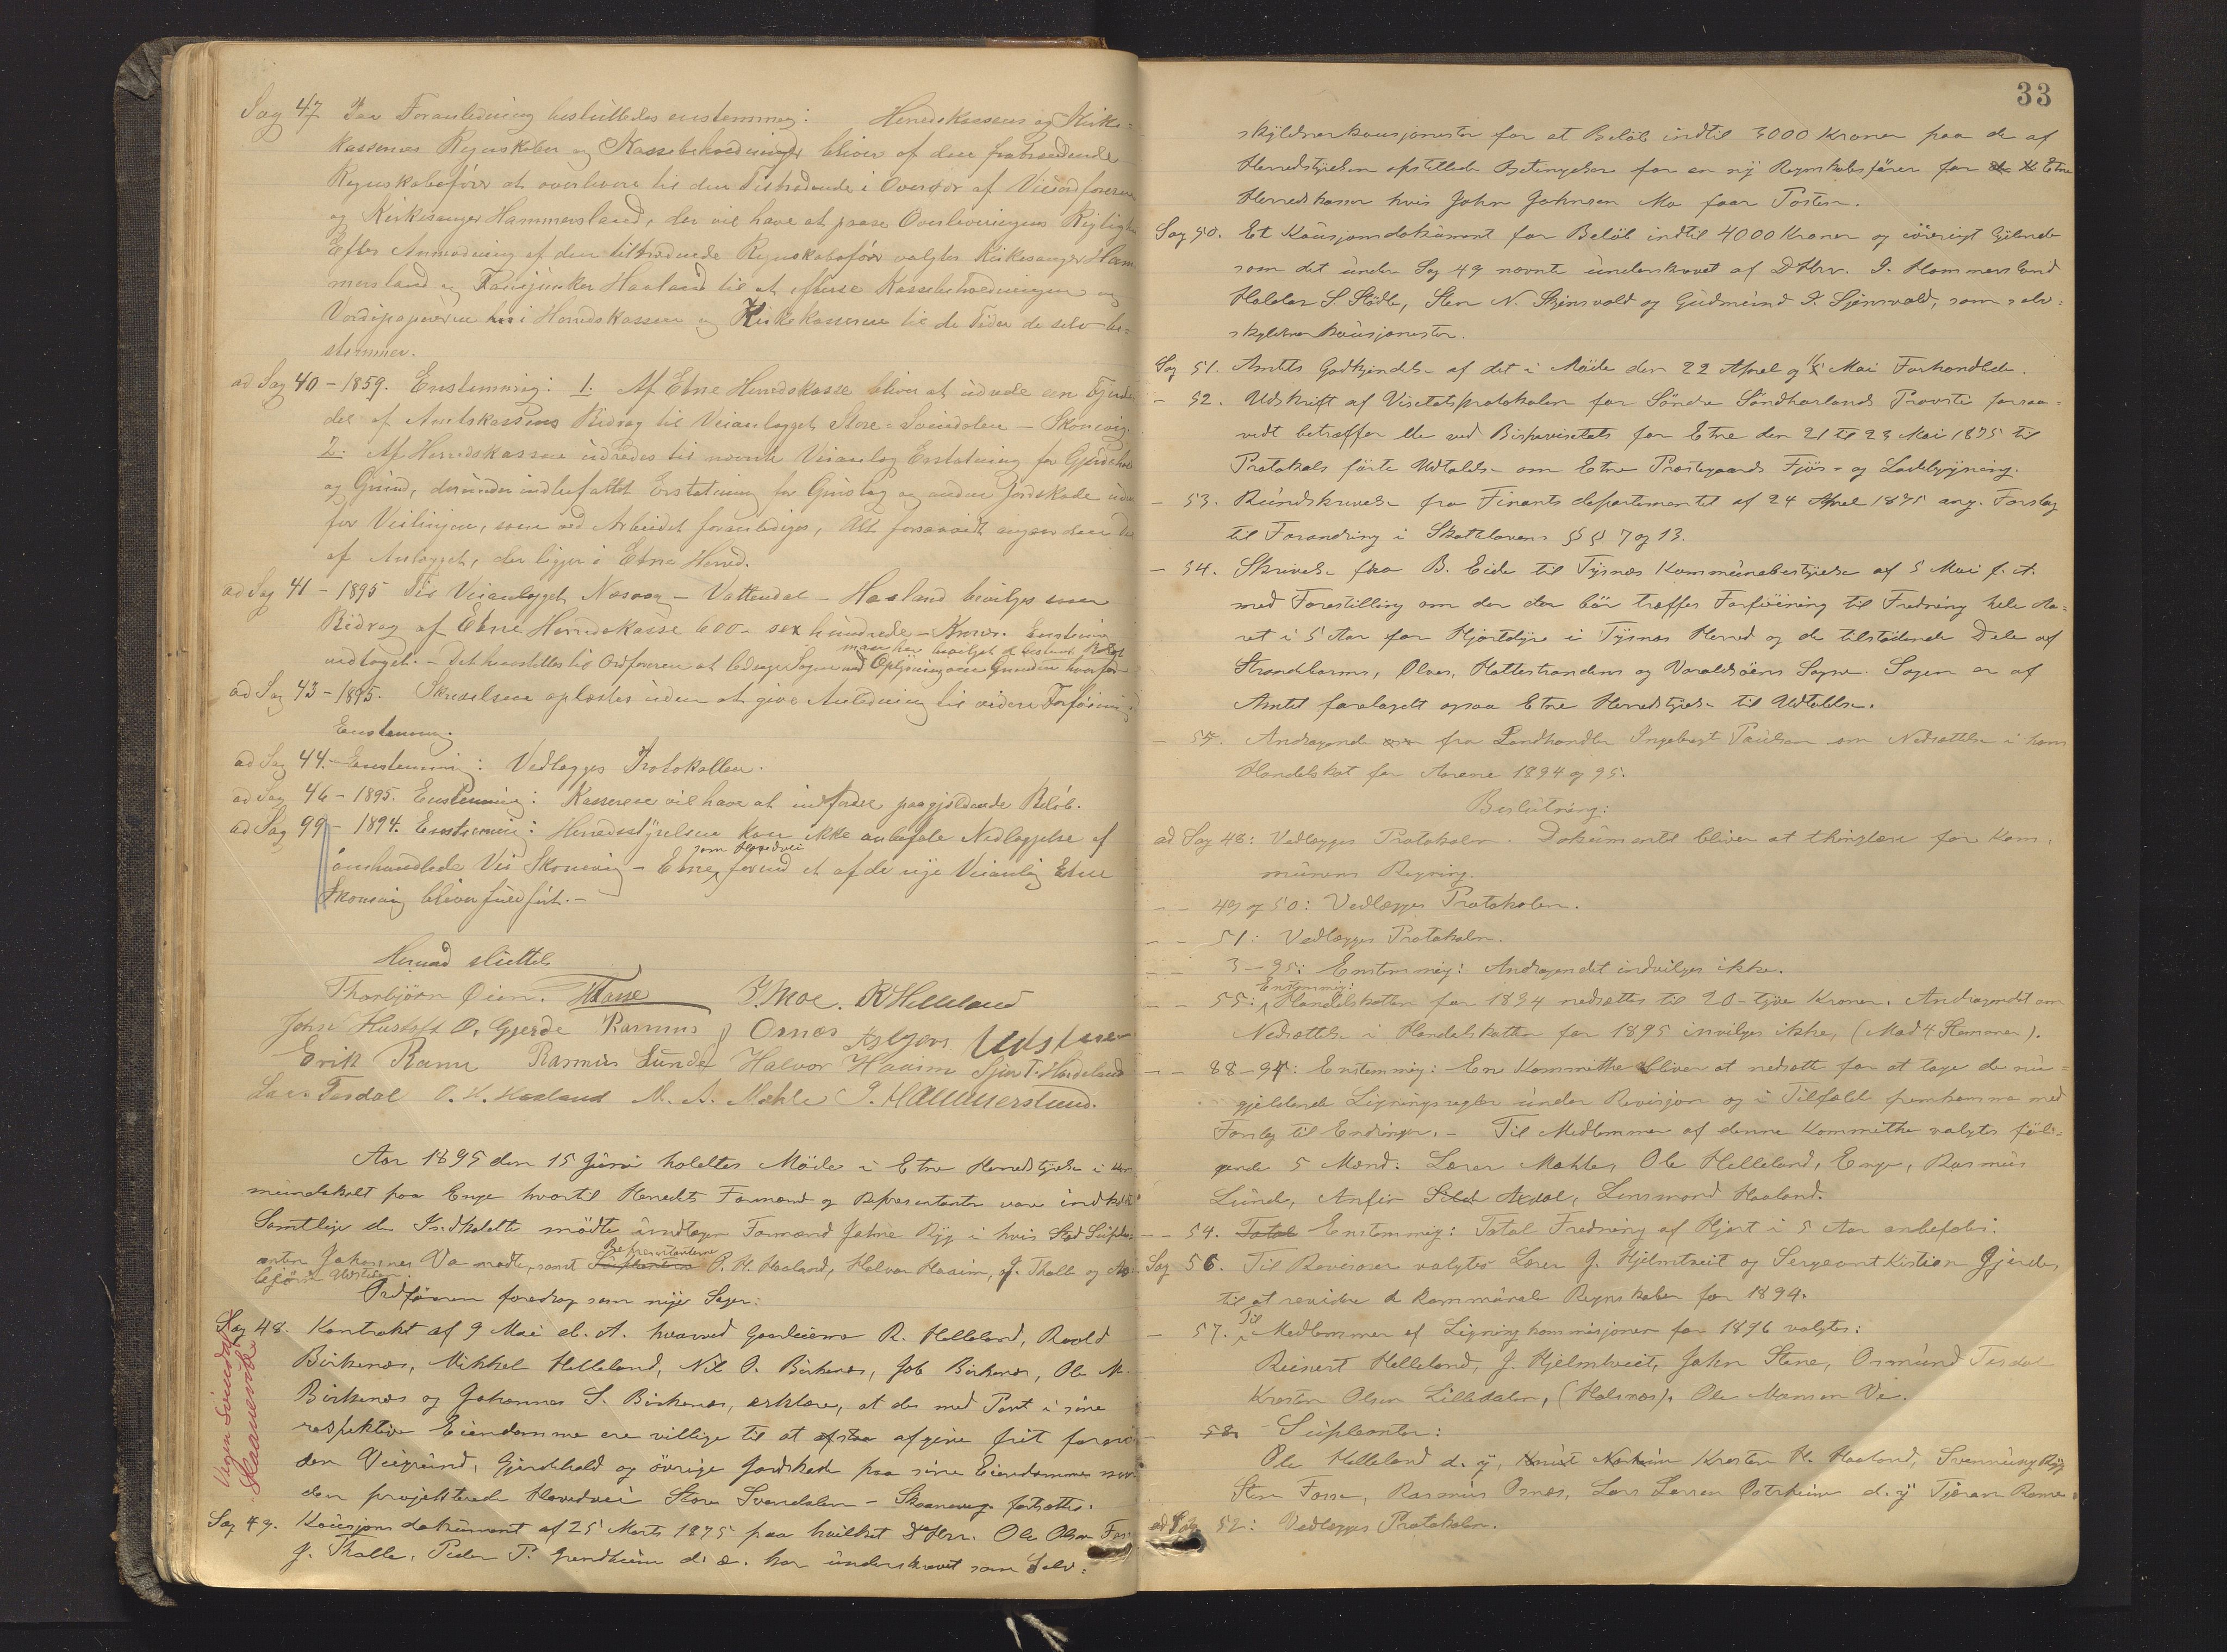 Sag 47 Paa Foranledning besluttedes enstemmig: Herredskassens og Kirke-
kassernes Regnskaber og Kassebeholdninger bliver af den fratrædende
Regnskabsfører at overlevere til den Tiltrædende i Overvær af Viceordføreren
og Kirkesanger Hammersland, der vil have at paase Overleveringens Rigtighed
Efter Anmodning af den tiltrædende Regnskabsfører valgtes Kirkesanger Ham-
mersland og Haaland til at efterse Kassebeholdningen og
Værdipapirerne i Herredskassen og Kirkekasserne til de Tider de selv be-
stemmer.
ad Sag 40 - 1859. Enstemmig: 1. Af Etne Herredskasse bliver at udrede en Fjerde-
del af Amtskassens Bidrag til Veianlægget Store-Svindalen - Skonevig.
2: Af Herredskassen udredes til nævnte Veianlæg Erstatning for Gjerdehold
og Grund, derunder indbefattet Erstatning for Grustag og anden Jordskade uden-
for Veilinjen, som ved Arbeidet foranlediges, Alt forsaavidt angaar den Del
af Anlægget, der ligger i Etne Herred.
ad Sag 41 - 1895 Til Veianlægget Næsvaag - Vattendal - Haaland bevilges som
Bidrag af Etne Herredskasse 600 - sex hundrede - Kroner. Enstemmig
man har bevilget et bestemt Beløb
vedtaget. - Det henstilles til Ordføreren at ledsage Sagen med Oplysning om Grunden hvorfor
ad Sag 43 - 1895. Skrivelsen oplæstes uden at give Anledning til videre Forføining
Enstemmig.
ad Sag 44. - Enstemmig: Vedlægges Protokollen.
ad Sag 46 - 1895. Enstemmig: Kassereren vil have at indfordre paagjældende Beløb.
ad Sag 99 - 1894. Enstemmig: Herredsstyrelsen kan ikke anbefale Nedlæggelse af
som Hovedvei
omhandlede Vei Skonevig - Etne, forend et af de nye Veianlæg Etne
Skonevig bliver fuldført. -
Hermed sluttet
Thorbjørn Øien. HFasse J. Moe. R Helleland
John Hustoft O. Gjerde Rasmus J Osnæs Asbjørn Udstuen
Erik Rame Rasmus Lunde Halvor Haaim Sjur T. Hardeland
Lars Tesdal O. H. Haaland M. A. Mæhle I. Hammersland.
Aar 1895 den 15 Juni holdtes Møde i Etne Herredstyrelse i Her-
mundskolt paa Enge hvortil Herredets Formænd og Repræsentanter vare indkaldte
Samtlige de Indkaldte mødte undtagen Formand Johne Ryg i hvis Sted Supple-
Repræsentanterne
anten Johannes Va mødte, samt Suplenterne P. H. Haaland, Halvor Haaim, J. Tholle og As-
bjørn Udstuen.
Ordføreren foredrog som nye Sager:
Sag 48. Kontrakt af 9 Mai d. A. hvorved Gaardeierne R. Helleland, Roald
Birkenæs, Mikkel Helleland, Nil O. Birkenæs, Job Birkenæs, Ole M.
Birkenæs og Johannes S. Birkenæs, erklære, at de med Part i sine
respektive Eiendomme ere villige til at afstaa afgive frit fornø-
den Veigrund, Gjerdehold og øvrige Jordskade paa sine Eiendomme naar
den projekterede Hovedvei Store Svendalen - Skaanevig fortsættes.
Vegen Svindal
Skaanevik
Sag 49. Kausjonsdokument af 25 Marts 1895 paa hvilket DHrr. Ole Olsen
J. Tholle, Peder P. Grindheim d. æ. har underskrevet som Selv-
33
skyldnerkausjonister for et Beløb indtil 3000 Kroner paa de af
Herredstyrelsen opstillede Betingelser for en ny Regnskabsfører for Etne
Herredskasse hvis John Johnsen Mo faar Posten.
Sag 50. Et Kausjonsdokument for Beløb indtil 4000 Kroner og iøvrigt lydende
som det under Sag 49 nævnte underskrevet af DHrr. I. Hammersland
Haldor S Stødle, Sten N. Skjensvold og Gudmund I. Sjensvold, som selv-
skyldnerkausjonister.
Sag 51. Amtets Godkjendelse af det i Møde den 22 April og Mai Forhandlede.
- 52. Udskrift af Visitatsprotokolen for Søndre Søndhorlands Provsti forsaa-
vidt betræffer de ved Bispevisitats for Etne den 21 til 23 Mai 1895 til
Protokols førte Udtalelse om Etne Prestegaards Fjøs- og Ladebygning.
- 53. Rundskrivelse fra Finantsdepartementet af 24 April 1895 ang. Forslag
til Forandring i Skattelovens §§ 7 og 13.
- 54. Skrivelse fra B. Eide til Tysnæs Kommunebestyrelse af 5 Mai f. A.
med Forestilling om der der bør træffes Forføining til Fredning hele Aa-
ret i 5 Aar for Hjortedyr i Tysnæs Herred og de tilstødende Dele af
Strandebarms, Ølves, Hattestrandens og Varaldsøens Sogne. Sagen er af
Amtet forelagdt ogsaa Etne Herredstyrelse til Udtalelse.
- 55. Andragende fra Landhandler Ingebregt Paulsen om Nedsættelse i hans
Handelskat for Aarene 1894 og 95.
Beslutning:
ad Sag 48: Vedlægges Protokolen. Dokumentet bliver at thinglæse for Kom-
munens Regning.
- - 49 og 50: Vedlægges Protokolen.
- - 51: Vedlægges Protokolen.
- - 3-95: Enstemmig: Andragendet indvilges ikke.
Enstemmig:
- - 55: Handelskatten for 1894 nedsættes til 20 - tyve Kroner. Andragendet om
Nedsættelse i Handelskatten for 1895 invilges ikke, (Mod 4 Stemmer).
- - 88-94: Enstemmig: En Kommitthe bliver at nedsætte for at tage de nu-
gjeldende Ligningsregler under Revisjon og i Tilfælde fremkomme med
Forslag til Endringer. - Til Medlemmer af denne Kommitthe valgtes føl-
gende 5 Mænd: Lærer Mæhle, Ole Helleland, Enge, Rasmus
Lunde, Anfin Axdal, Lensmand Haaland.
- - 54. Total Enstemmig: Total Fredning af Hjort i 5 Aar anbefales.
Sag 56. Til Revisorer valgtes Lærer J. Hjelmtveit og Sergeant Kistian Gjerde,
til at revidere de kommunale Regnskaber for 1894.
Til
- 57. Medlemmer af Ligningskommisjonen for 1896 valgtes:
Reinert Helleland, J. Hjelmtveit, John Stene, Osmund Tesdal
Kresten Olsen Lilledalen, (Halsnæs), Ole Monsen Vi.
- 58. Suppleanter:
Ole Helleland d. y, Kresten H. Haaland, Svenning Ryg
Sten Fosse, Rasmus Osnæs, Lars Larsen Østrheim d. y Tjeran Rame.
ad Sag 52: Vedlægges Protokolen.